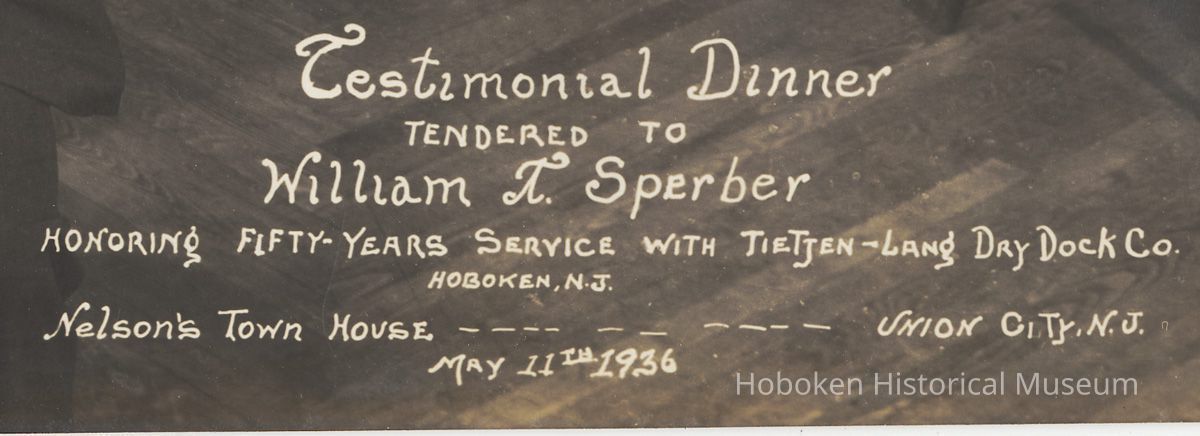 Testimonial Dinner
TENDERED TO
William T. Sperber
HONORING FIFTY-YEARS SERVICE WITH TIETJEN-LANG DRY DOCK CO.
HOBOKEN, N.J.
Nelson's Town House ---- -- ---- UNION CITY, N.J.
MAY 11TH 1936
Hoboken Historical Museum